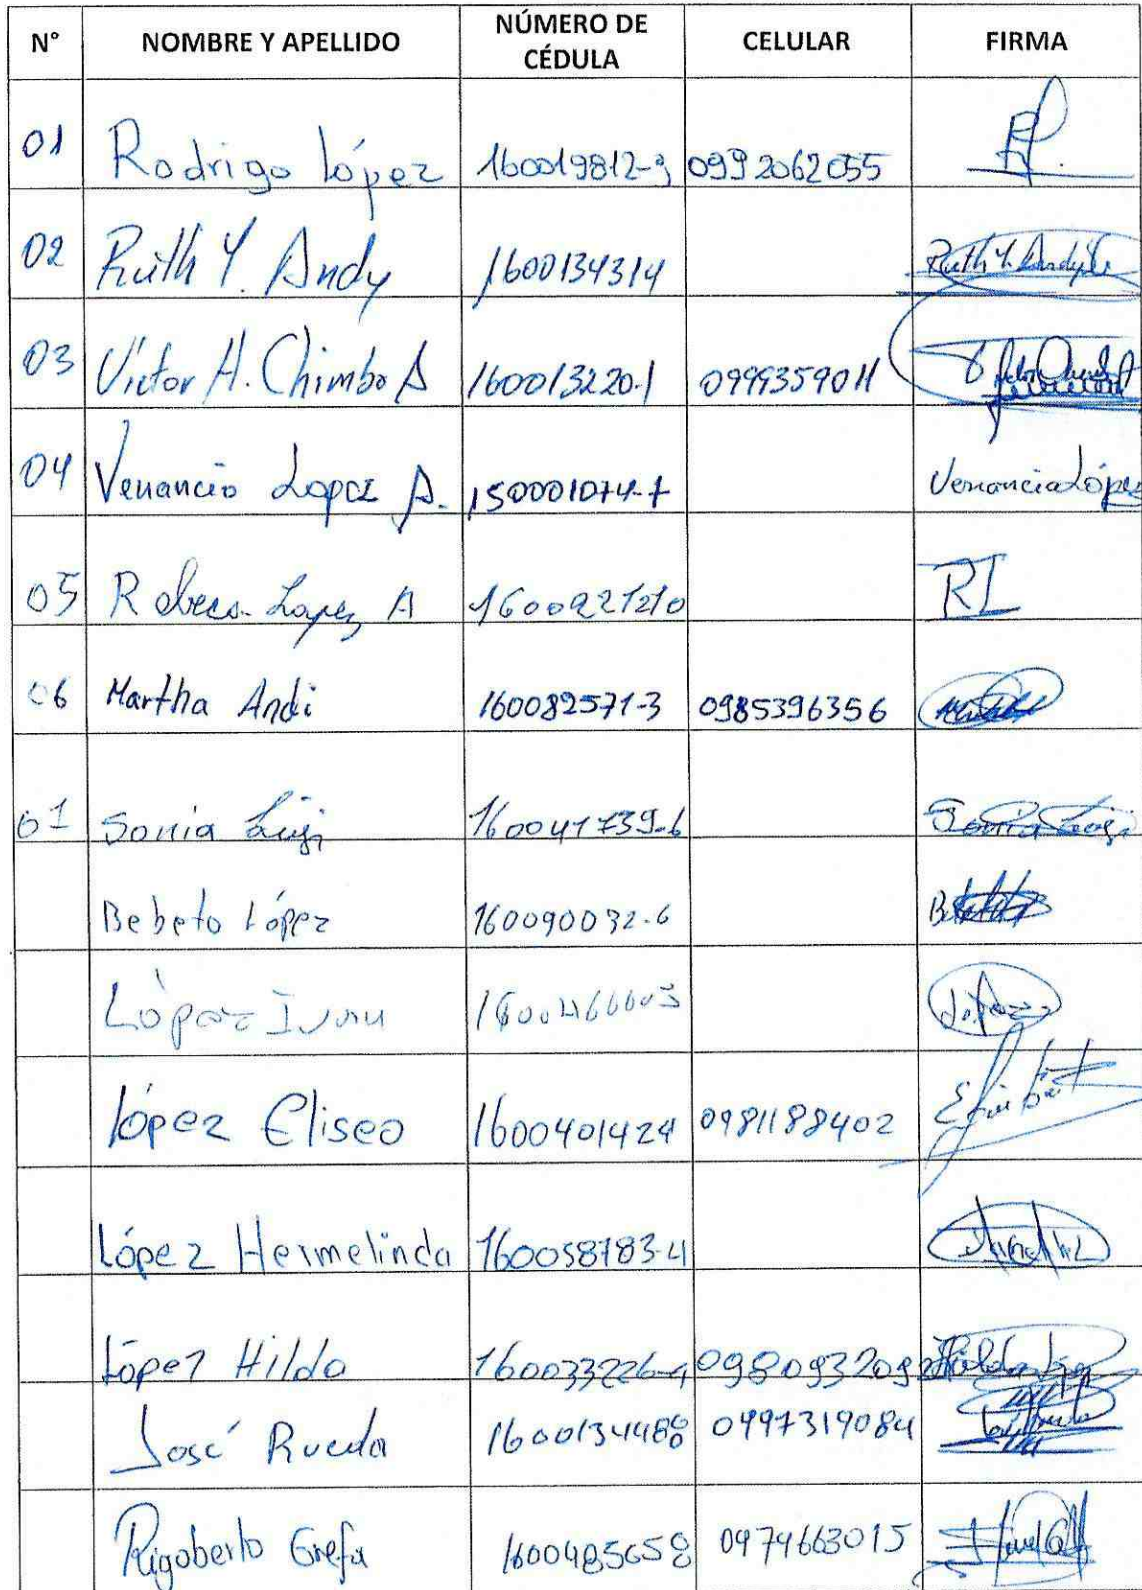 N° NOMBRE Y APELLIDO NÚMERO DE CÉDULA CELULAR FIRMA
01 Rodrigo López 160019812-3 0992062055
02 Ruth Y. Andy 1600134314 Ruth Y. Andy
03 Víctor H. Chimbo A 160013220-1 0999359011
04 Venancio Lopez A. 150001074-7 Venancio López
05 Rebeca Lopez A 1600221210 RL
06 Martha Andi 160082571-3 0985396356
01 Sonia Licuy 160041739-6 Sonia
Bebeto López 160090032-6
López Ivan
López Eliseo 1600401424 0981188402
López Hermelinda 160058783-4
López Hilda 160033226-9 0980932092 Hilda
José Rueda 0997319084
Rigoberto Grefa 1600485658 0974663015